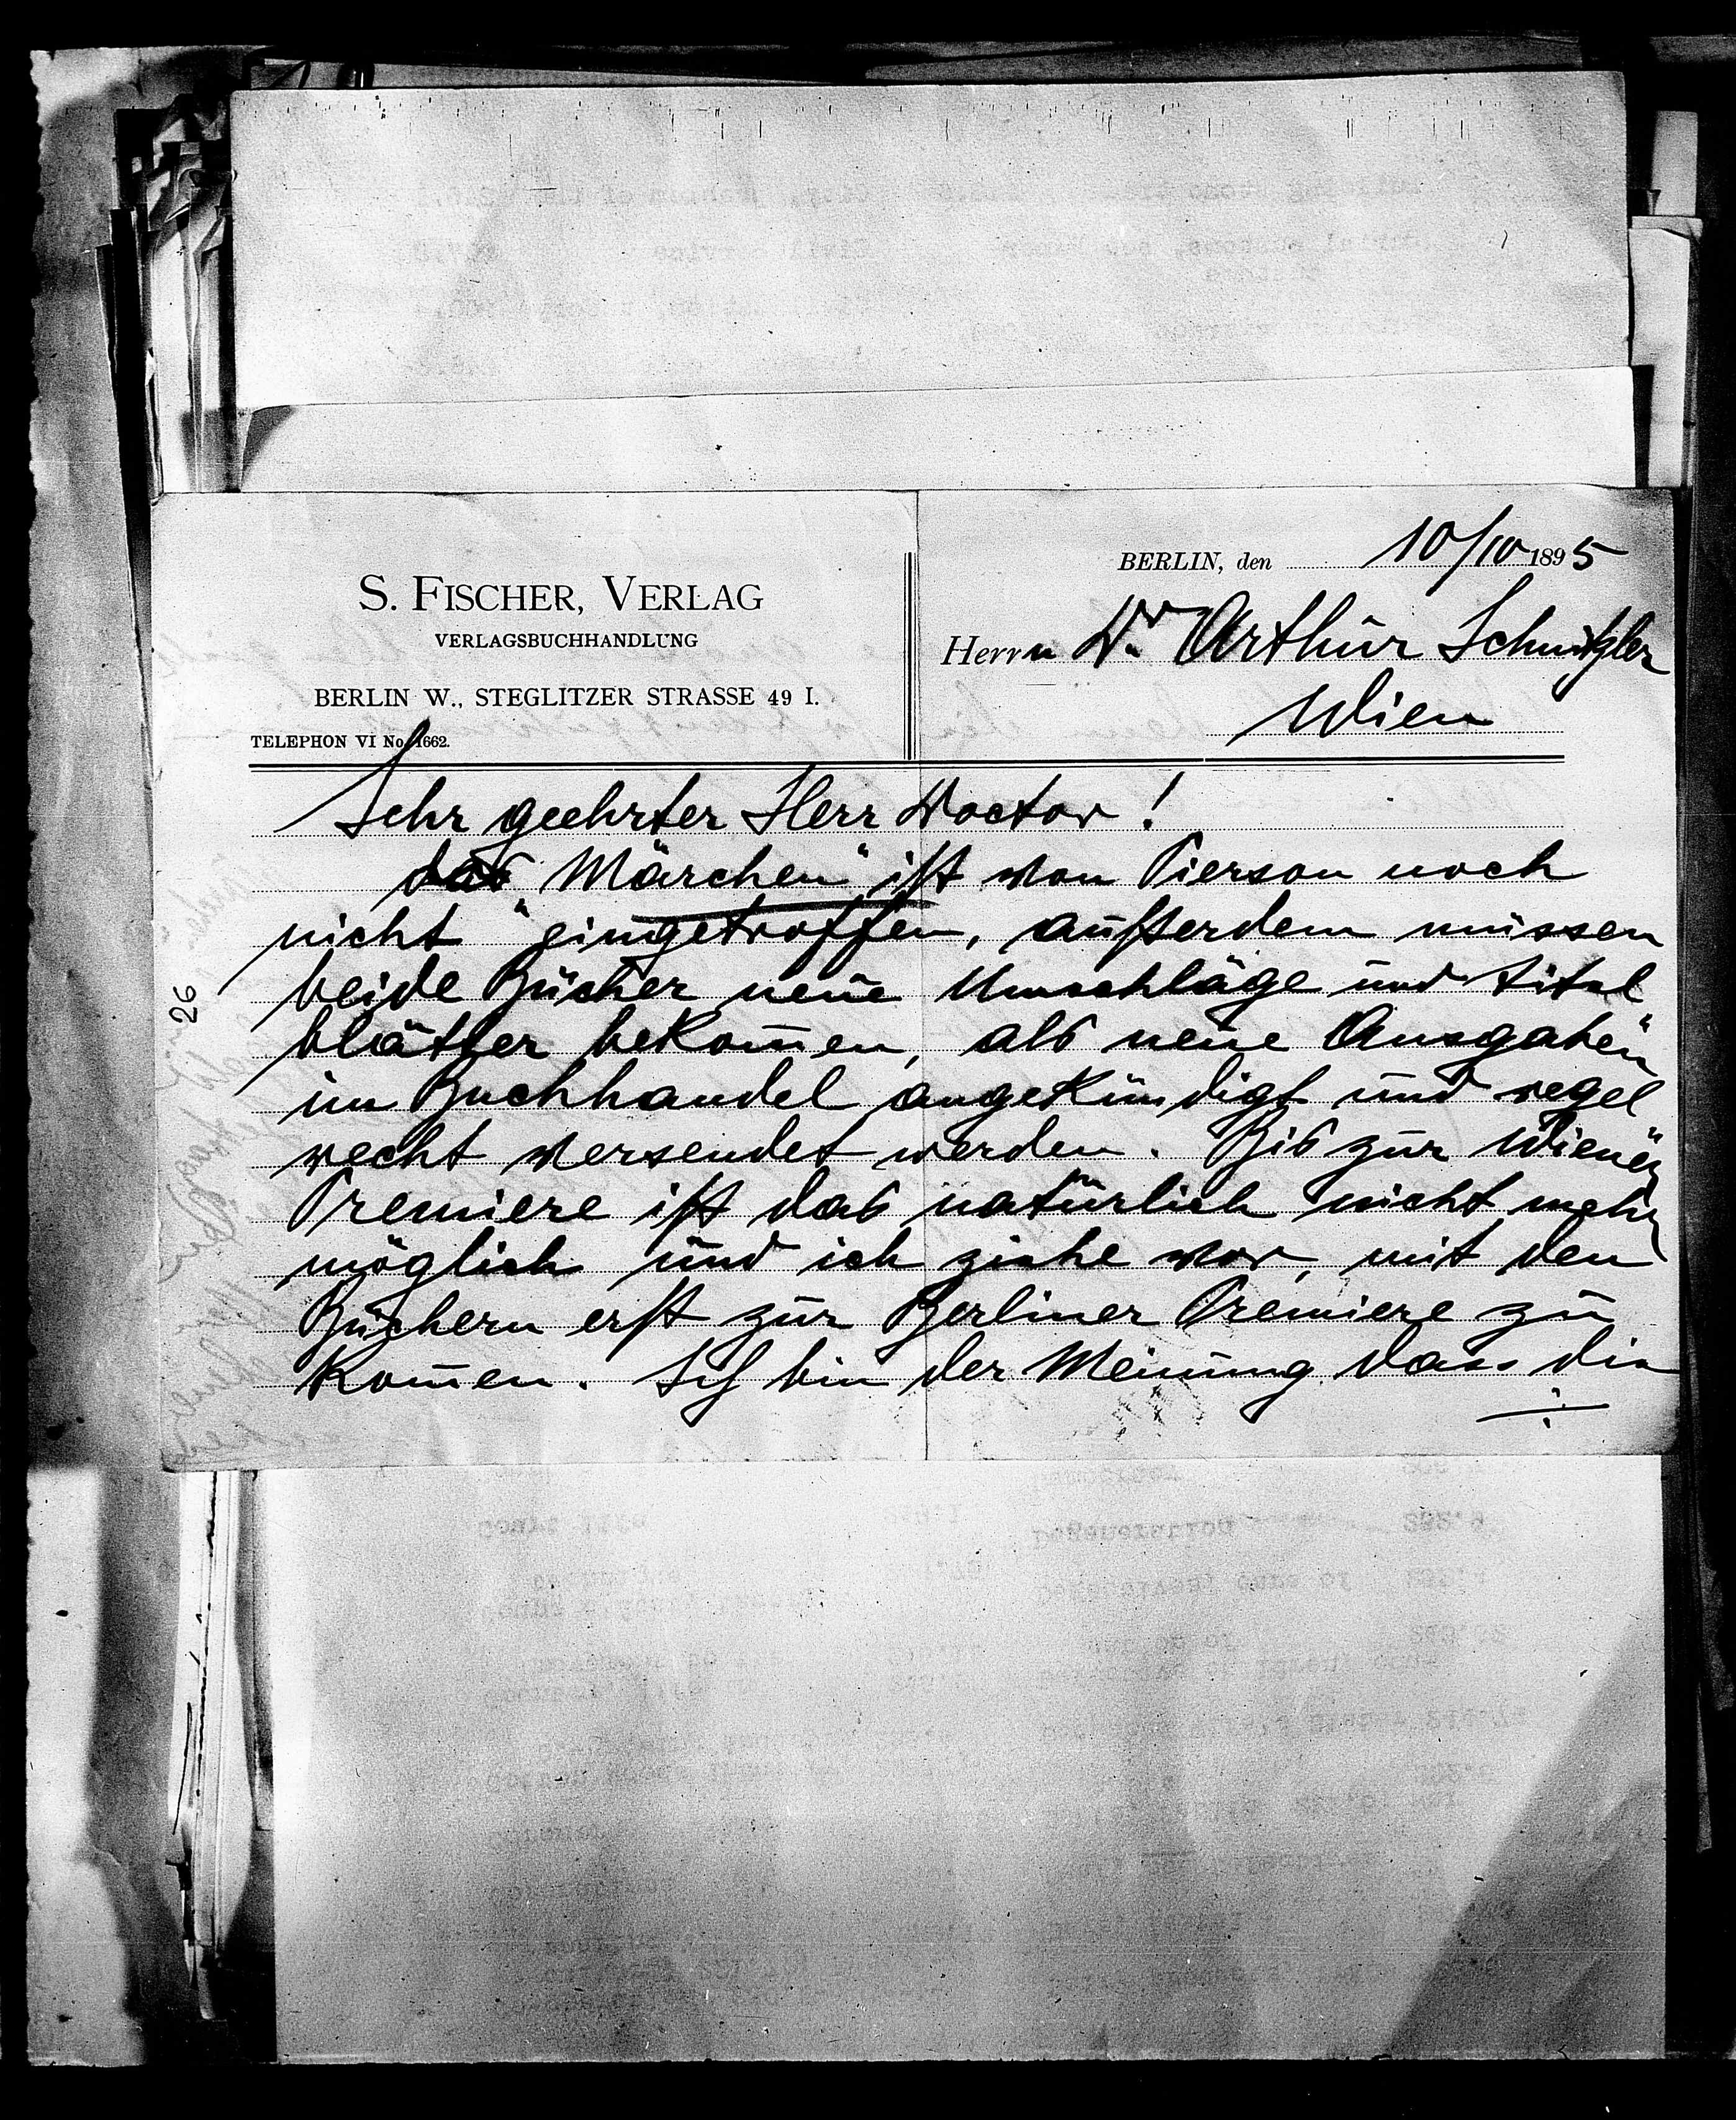 S. FISCHER, VERLAG
VERLAGSBUCHHANDLUNG
BERLIN W., STEGLITZER STRASSE 49 I.
TELEPHON VI No. 1662.
BERLIN, den 10/10 1895
Herrn Dr. Arthur Schnitzler
Wien
Sehr geehrter Herr Doctor!
das Märchen" ist von Pierson noch
nicht eingetroffen, außerdem müssen
beide Bücher neue Umschläge und Titel
blätter bekom̄en, als neue Ausgaben
im Buchhandel angekündigt und regel
recht versendet werden. Bis zur Wiener
Premiere ist das natürlich nicht mehr
möglich und ich ziehe vor, mit den
Büchern erst zur Berliner Premiere zu
kom̄en. Ich bin der Meinung dass die
26